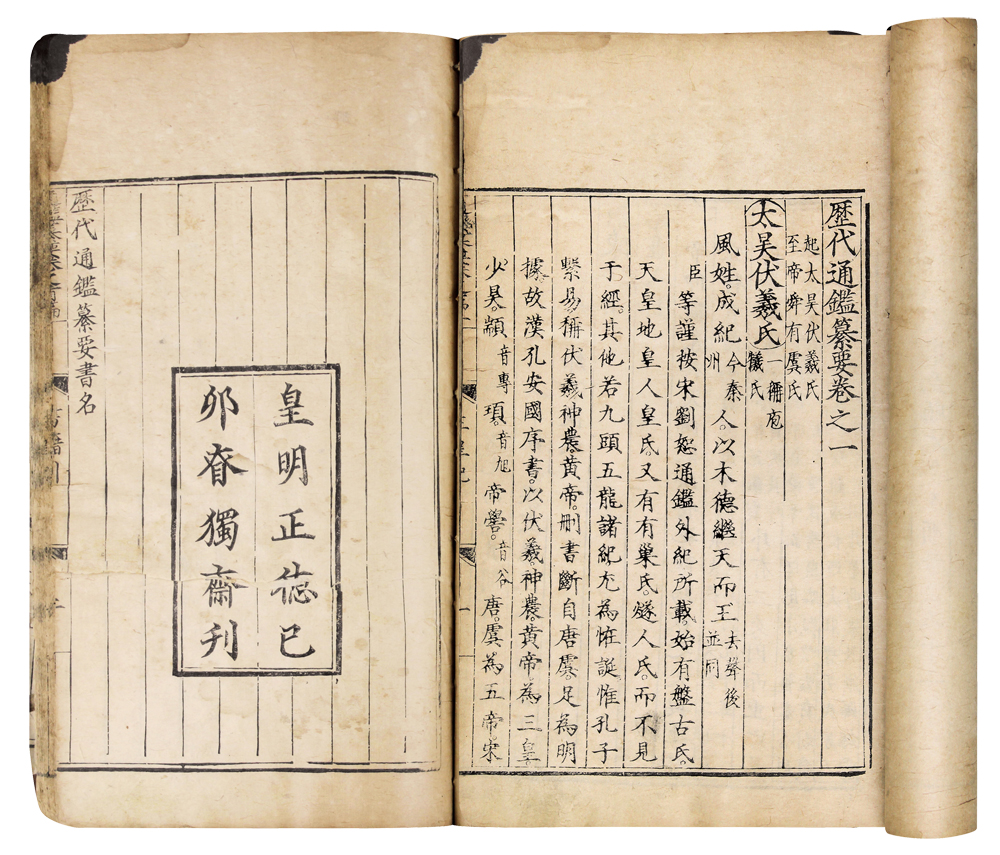 歷代通鑑纂要卷之一
起太昊伏羲氏
至帝舜有虞氏
太昊伏羲氏一稱庖犧氏
風姓。成紀今秦州人。以木德繼天而王去聲後並同
臣等謹按宋劉恕通鑑外紀所載。始有盤古氏。
天皇地皇人皇氏。又有有巢氏。燧人氏。而不見
于經。其他若九頭五龍諸紀尤為恠誕惟孔子
繫易。稱伏羲神農。黃帝。刪書斷自唐虞。足為明
據。故漢孔安國序書。以伏羲。神農。黃帝為三皇
少昊。顓音專頊。音旭帝嚳。音谷唐。虞為五帝宋
皇明正徳己
卯眘獨齋刊
歷代通鑑纂要書名